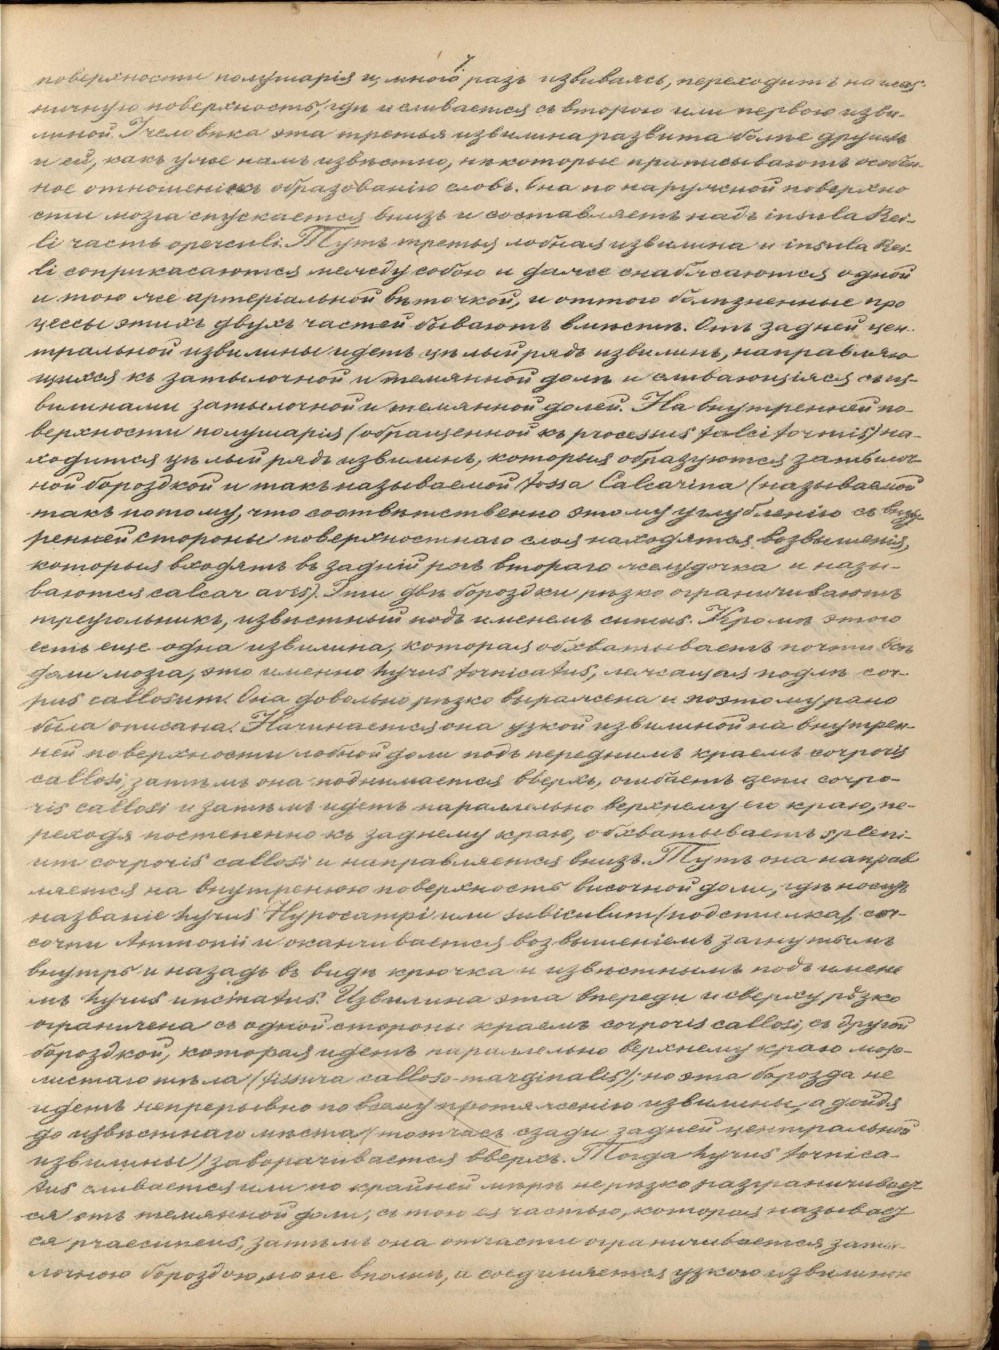 7
поверхности полушарія и, много разъ извиваясь, переходитъ на глаз-
ничную поверхность, гдѣ и сливается съ второю или первою изви-
линой. У человѣка эта третья извилина развита болѣе другихъ
и ей, какъ уже намъ извѣстно, нѣкоторые приписываютъ особен-
ное отношеніе къ образованію словъ. Она по наружной поверхно
сти мозга спускается внизъ и составляетъ надъ insula Rei-
li часть operculi. Тутъ третья лобная извилина и insula Rei-
li соприкасаются между собою и даже снабжаются одной
и тою же артеріальной вѣточкой, и оттого болѣзненные про
цессы этихъ двухъ частей бываютъ вмѣстѣ. Отъ задней цен-
тральной извилины идетъ цѣлый рядъ извилинъ, направляю
щихся къ затылочной и темянной долѣ и сливающіяся съ из-
вилинами затылочной и темянной долей. На внутренней по-
верхности полушарія (обращенной къ processus falciformis) на-
ходится цѣлый рядъ извилинъ, которыя образуются затылоч-
ной бороздкой и такъ называемой fossa Calcarina (называемой
такъ потому, что соотвѣтственно этому углубленію съ внут-
ренней стороны поверхностнаго слоя находятся возвышенія,
которыя входятъ въ задній рогъ втораго желудочка и назы-
ваются calcar avis). Эти двѣ бороздки рѣзко ограничиваютъ
треугольникъ, извѣстный подъ именемъ cuneus. Кромѣ этого
есть еще одна извилина, которая обхватываетъ почти всѣ
доли мозга, это именно hyrus fornicatus, лежащая подлѣ cor-
pus callosum. Она довольно рѣзко выражена и поэтому рано
была описана. Начинается она узкой извилиной на внутрен-
ней поверхности лобной доли подъ переднимъ краемъ corporis
callosi, затѣмъ она поднимается вверхъ, огибаетъ genu corpo-
ris callosi и затѣмъ идетъ параллельно верхнему его краю, пе-
реходя постепенно къ заднему краю, обхватываетъ spleni-
um corporis callosi и направляется внизъ. Тутъ она направ
ляется на внутреннюю поверхность височной доли, гдѣ носитъ
названіе hyrus Hypocampi или subiculum (подстилка) cor-
cornu Ammonii и оканчивается возвышеніемъ загнутымъ
внутрь и назадъ въ видѣ крючка и извѣстнымъ подъ имене
мъ hyrus uncinatus. Извилина эта впереди и сверху рѣзко
ограничена съ одной стороны краемъ corporis callosi, съ другой
бороздкой, которая идетъ параллельно верхнему краю мозо-
листаго тѣла (fissura calloso-marginalis); но эта борозда не
идетъ непрерывно по всему протяженію извилины, а дойдя
до извѣстнаго мѣста (тотчасъ сзади задней центральной
извилины) заворачивается вверхъ. Тогда hyrus fornica-
tus сливается или по крайней мѣрѣ не рѣзко разграничивает-
ся отъ темянной доли, съ тою ея частью, которая называет
ся praecuneus, затѣмъ она отчасти ограничивается заты-
лочною бороздою, но не вполнѣ, а соединяется узкою извилиною